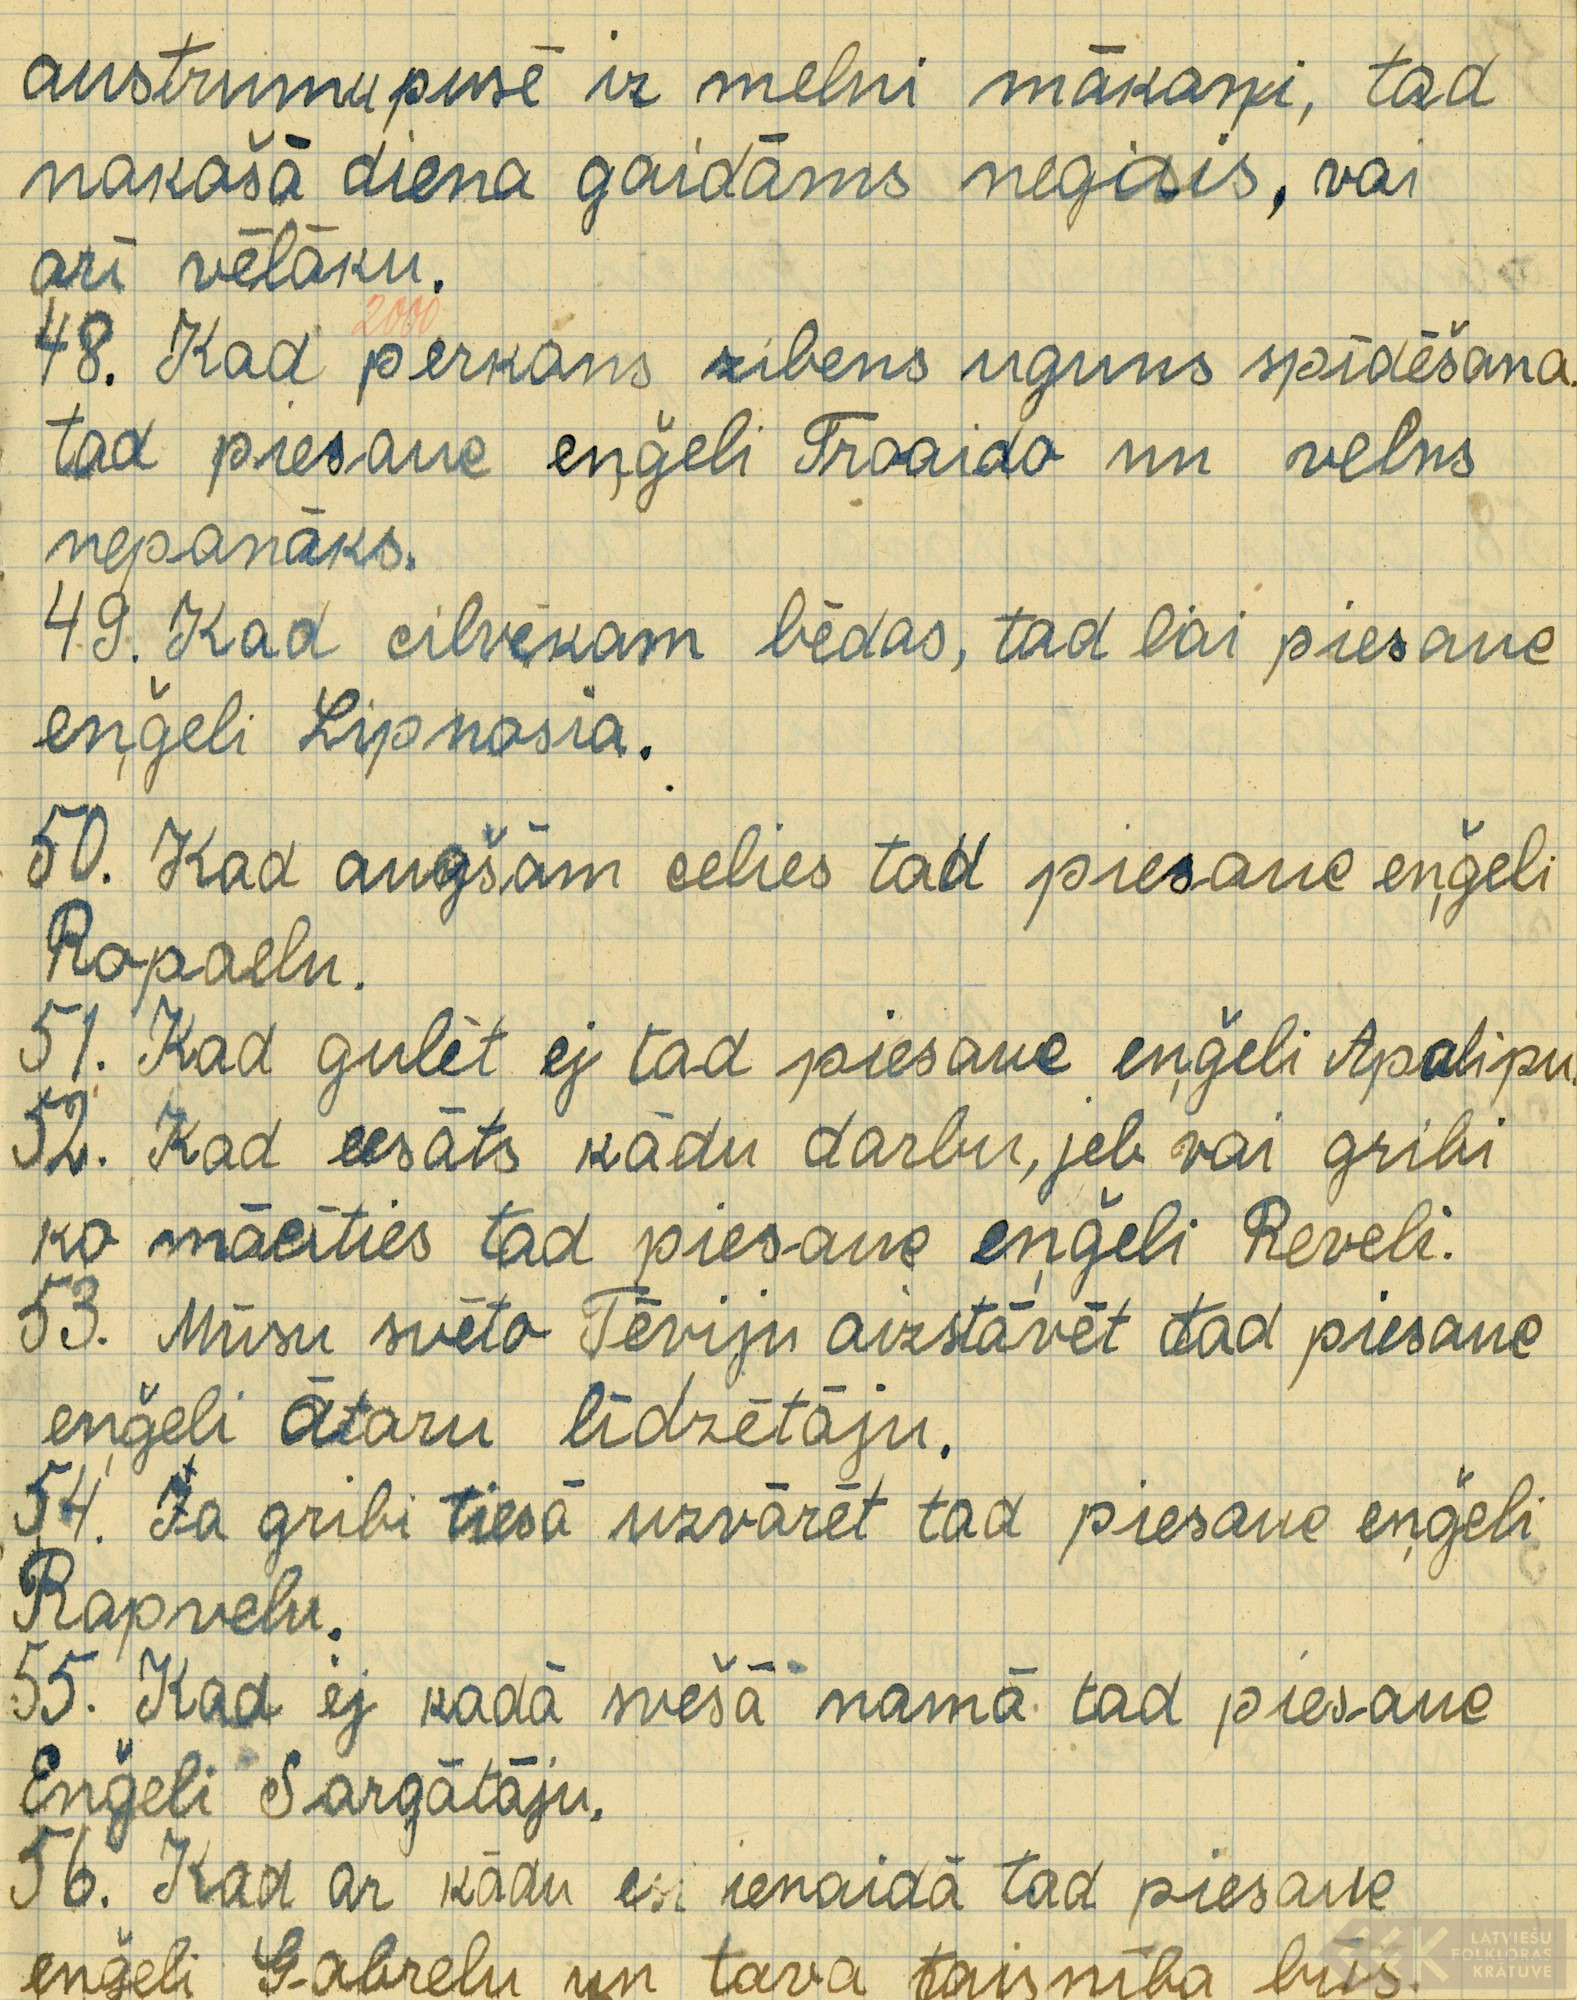 austrumu pusē ir melni mākaņi, tad
nakašā diena gaidāms negais, vai
arī vēlāku.
2000
48. Kad pērkons zibens uguns spīdēšana.
tad piesauc eņģeli Traaida un velns
nepanāks.
49. Kad cilvēkam bēdas, tad lai piesauc
eņģeli Lipnasia.
50. Kad augšām celies tad piesauc eņģeli
Rapaelu.
51. Kad gulēt ej tad piesauc eņģeli Apalipu.
52. Kad eesāts kādu darbu, jeb vai gribi
ko mācīties tad piesauc eņģeli Reveli.
53. Mūsu svēto Tēviju aizstāvēt tad piesauc
eņģeli ātaru līdzētāju.
54. Ja gribi tiesā uzvārēt tad piesauc eņģeli
Rapvelu.
55. Kad ej kadā svešā namā tad piesauc
Eņģeli Sargātāju.
56. Kad ar kādu esi ienaidā tad piesauc
eņģeli Gabrelu un tava taisnība būs.
LATVIEŠU
FOLKLORAS
KRĀTUVE